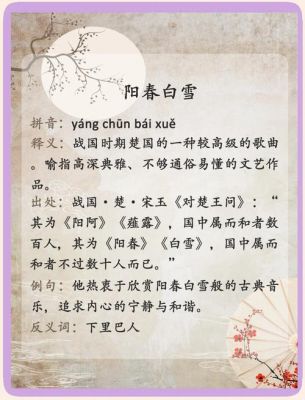 阳春白雪
拼音：yáng chūn bái xuě
释义：战国时期楚国的一种较高级的歌曲
。喻指高深典雅、不够通俗易懂的文艺作
品。
出处：战国·楚·宋玉《对楚王问》：“
其为《阳阿》《薤露》，国中属而和者数
百人，其为《阳春》《白雪》，国中属而
和者不过数十人而已。”
例句：他热衷于欣赏阳春白雪般的古典音
乐，追求内心的宁静与和谐。
反义词：下里巴人